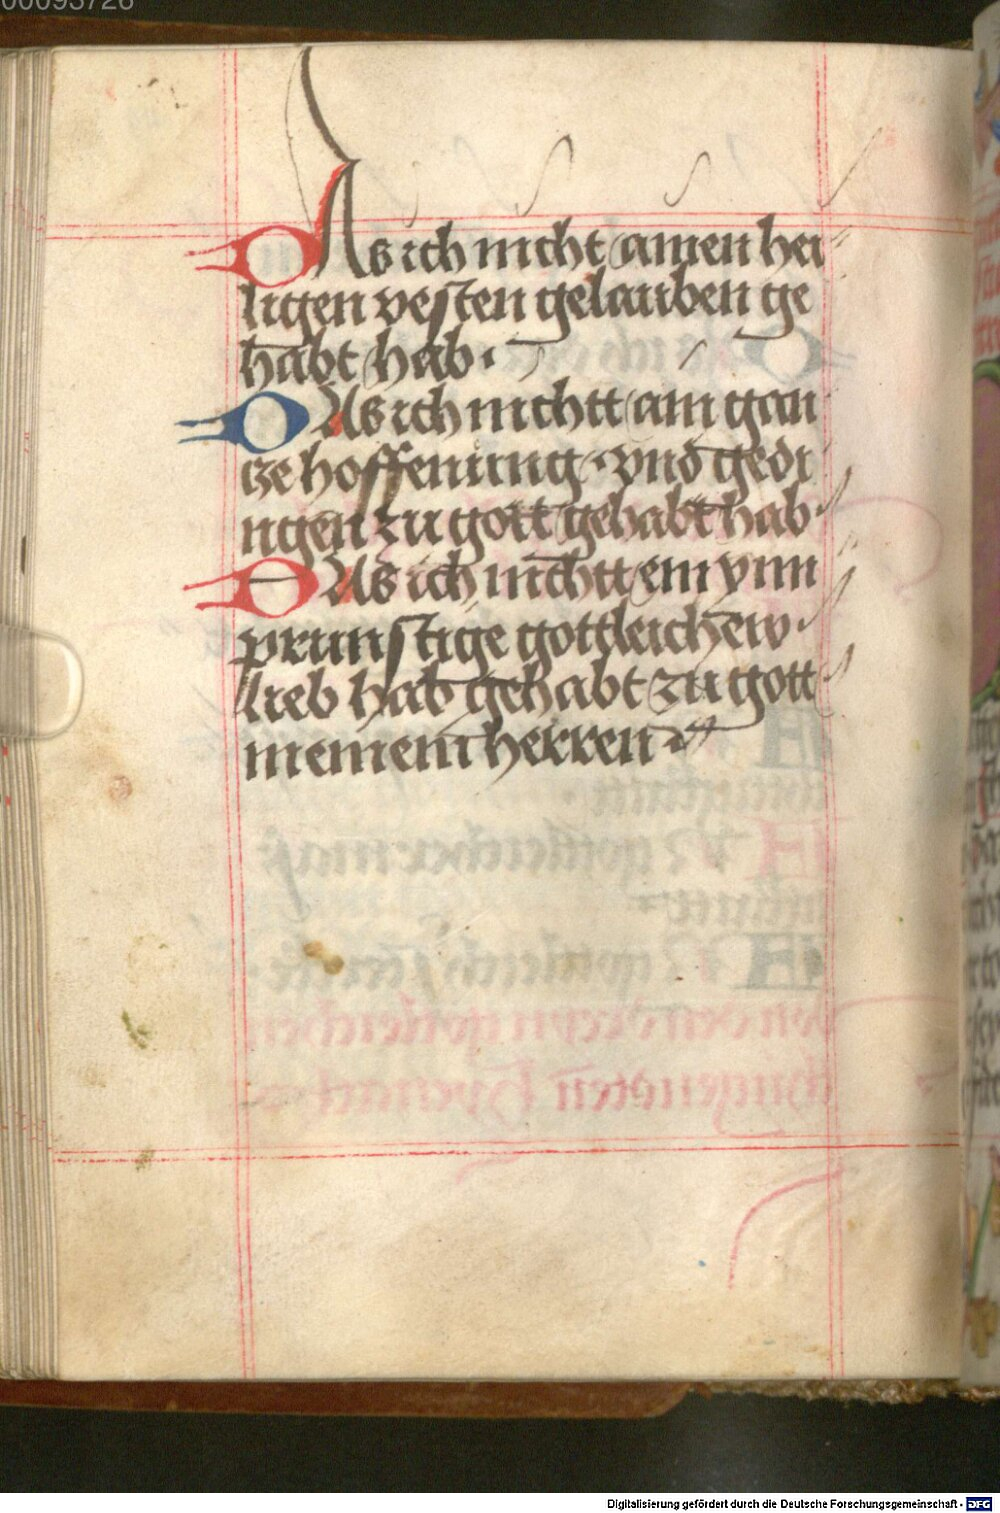 00095726
DAs ich nicht ainen hei
ligen vesten gelauben ge
habt hab·
DAs ich nichtt ain gan
cze hoffenung · vnd gedi
ngen zu gott gehabt hab·
DAs ich nichtt ein ynn
prunstige gottleichew·
lieb hab gehabt zu gott
meinem herren
Digitalisierung gefördert durch die Deutsche Forschungsgemeinschaft - DFG